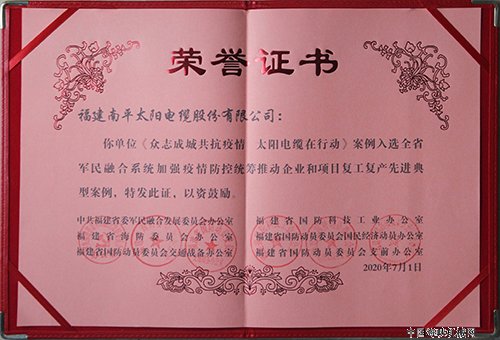 荣誉证书
福建南平太阳电缆股份有限公司：
你单位《众志成城共抗疫情 太阳电缆在行动》案例入选全省
军民融合系统加强疫情防控统筹推动企业和项目复工复产先进典
型案例，特发此证，以资鼓励。
中共福建省委军民融合发展委员会办公室 福建省国防科技工业办公室
福建省海防委员会办公室 福建省国防动员委员会国民经济动员办公室
福建省国防动员委员会交通战备办公室 福建省国防动员委员会支前办公室
2020年7月1日